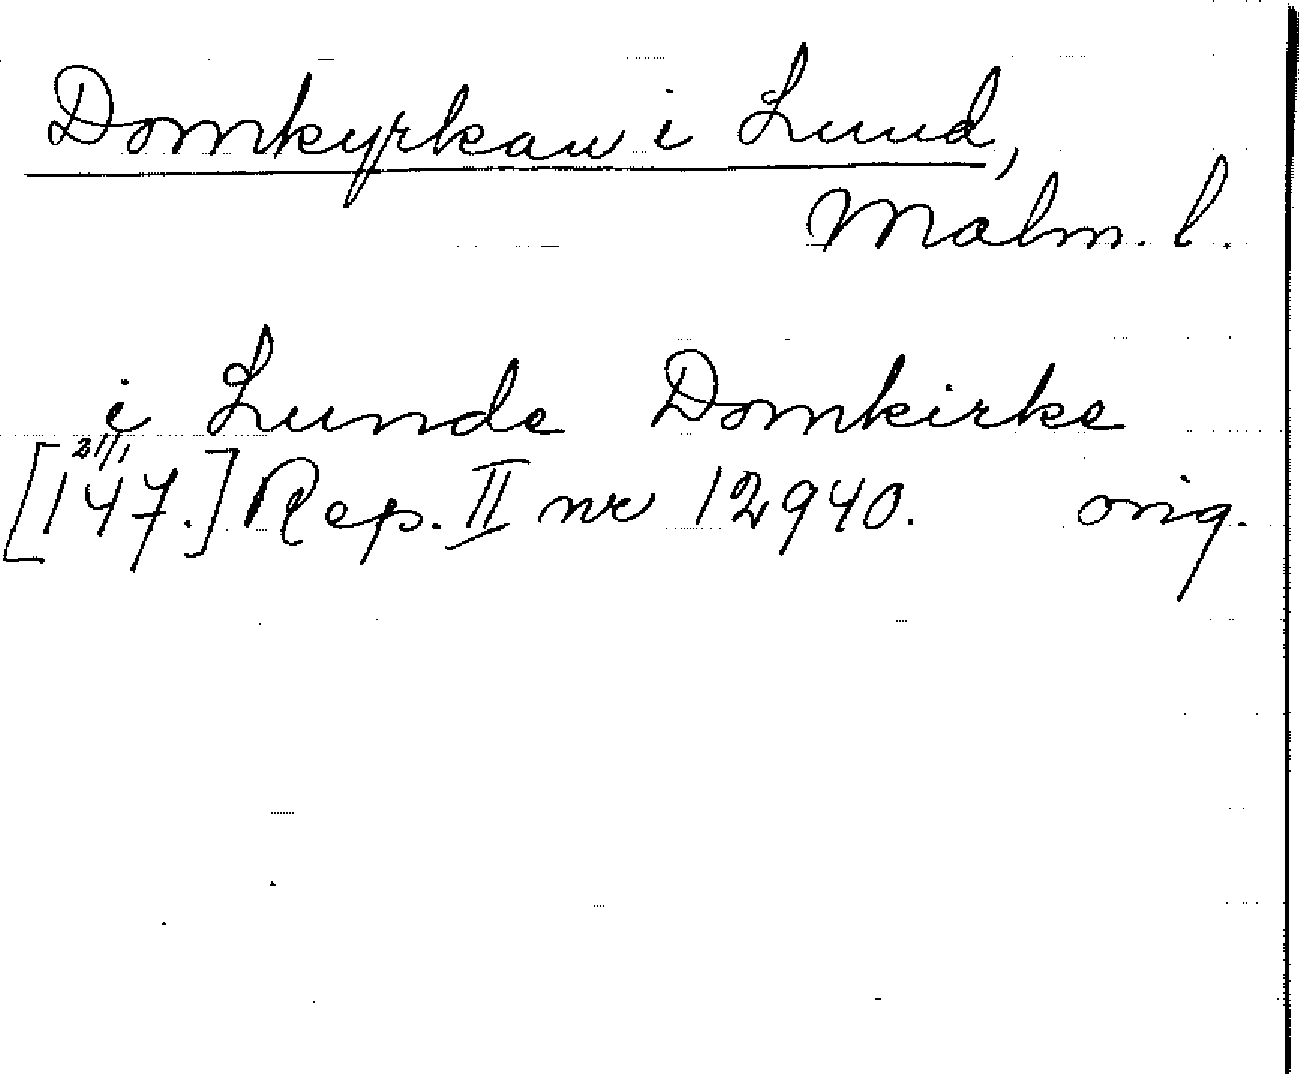 Domkyrkan i Lund,
Malm. l.
i Lunde Domkirke
21/1
[147.] Rep. II nr 12940. orig.